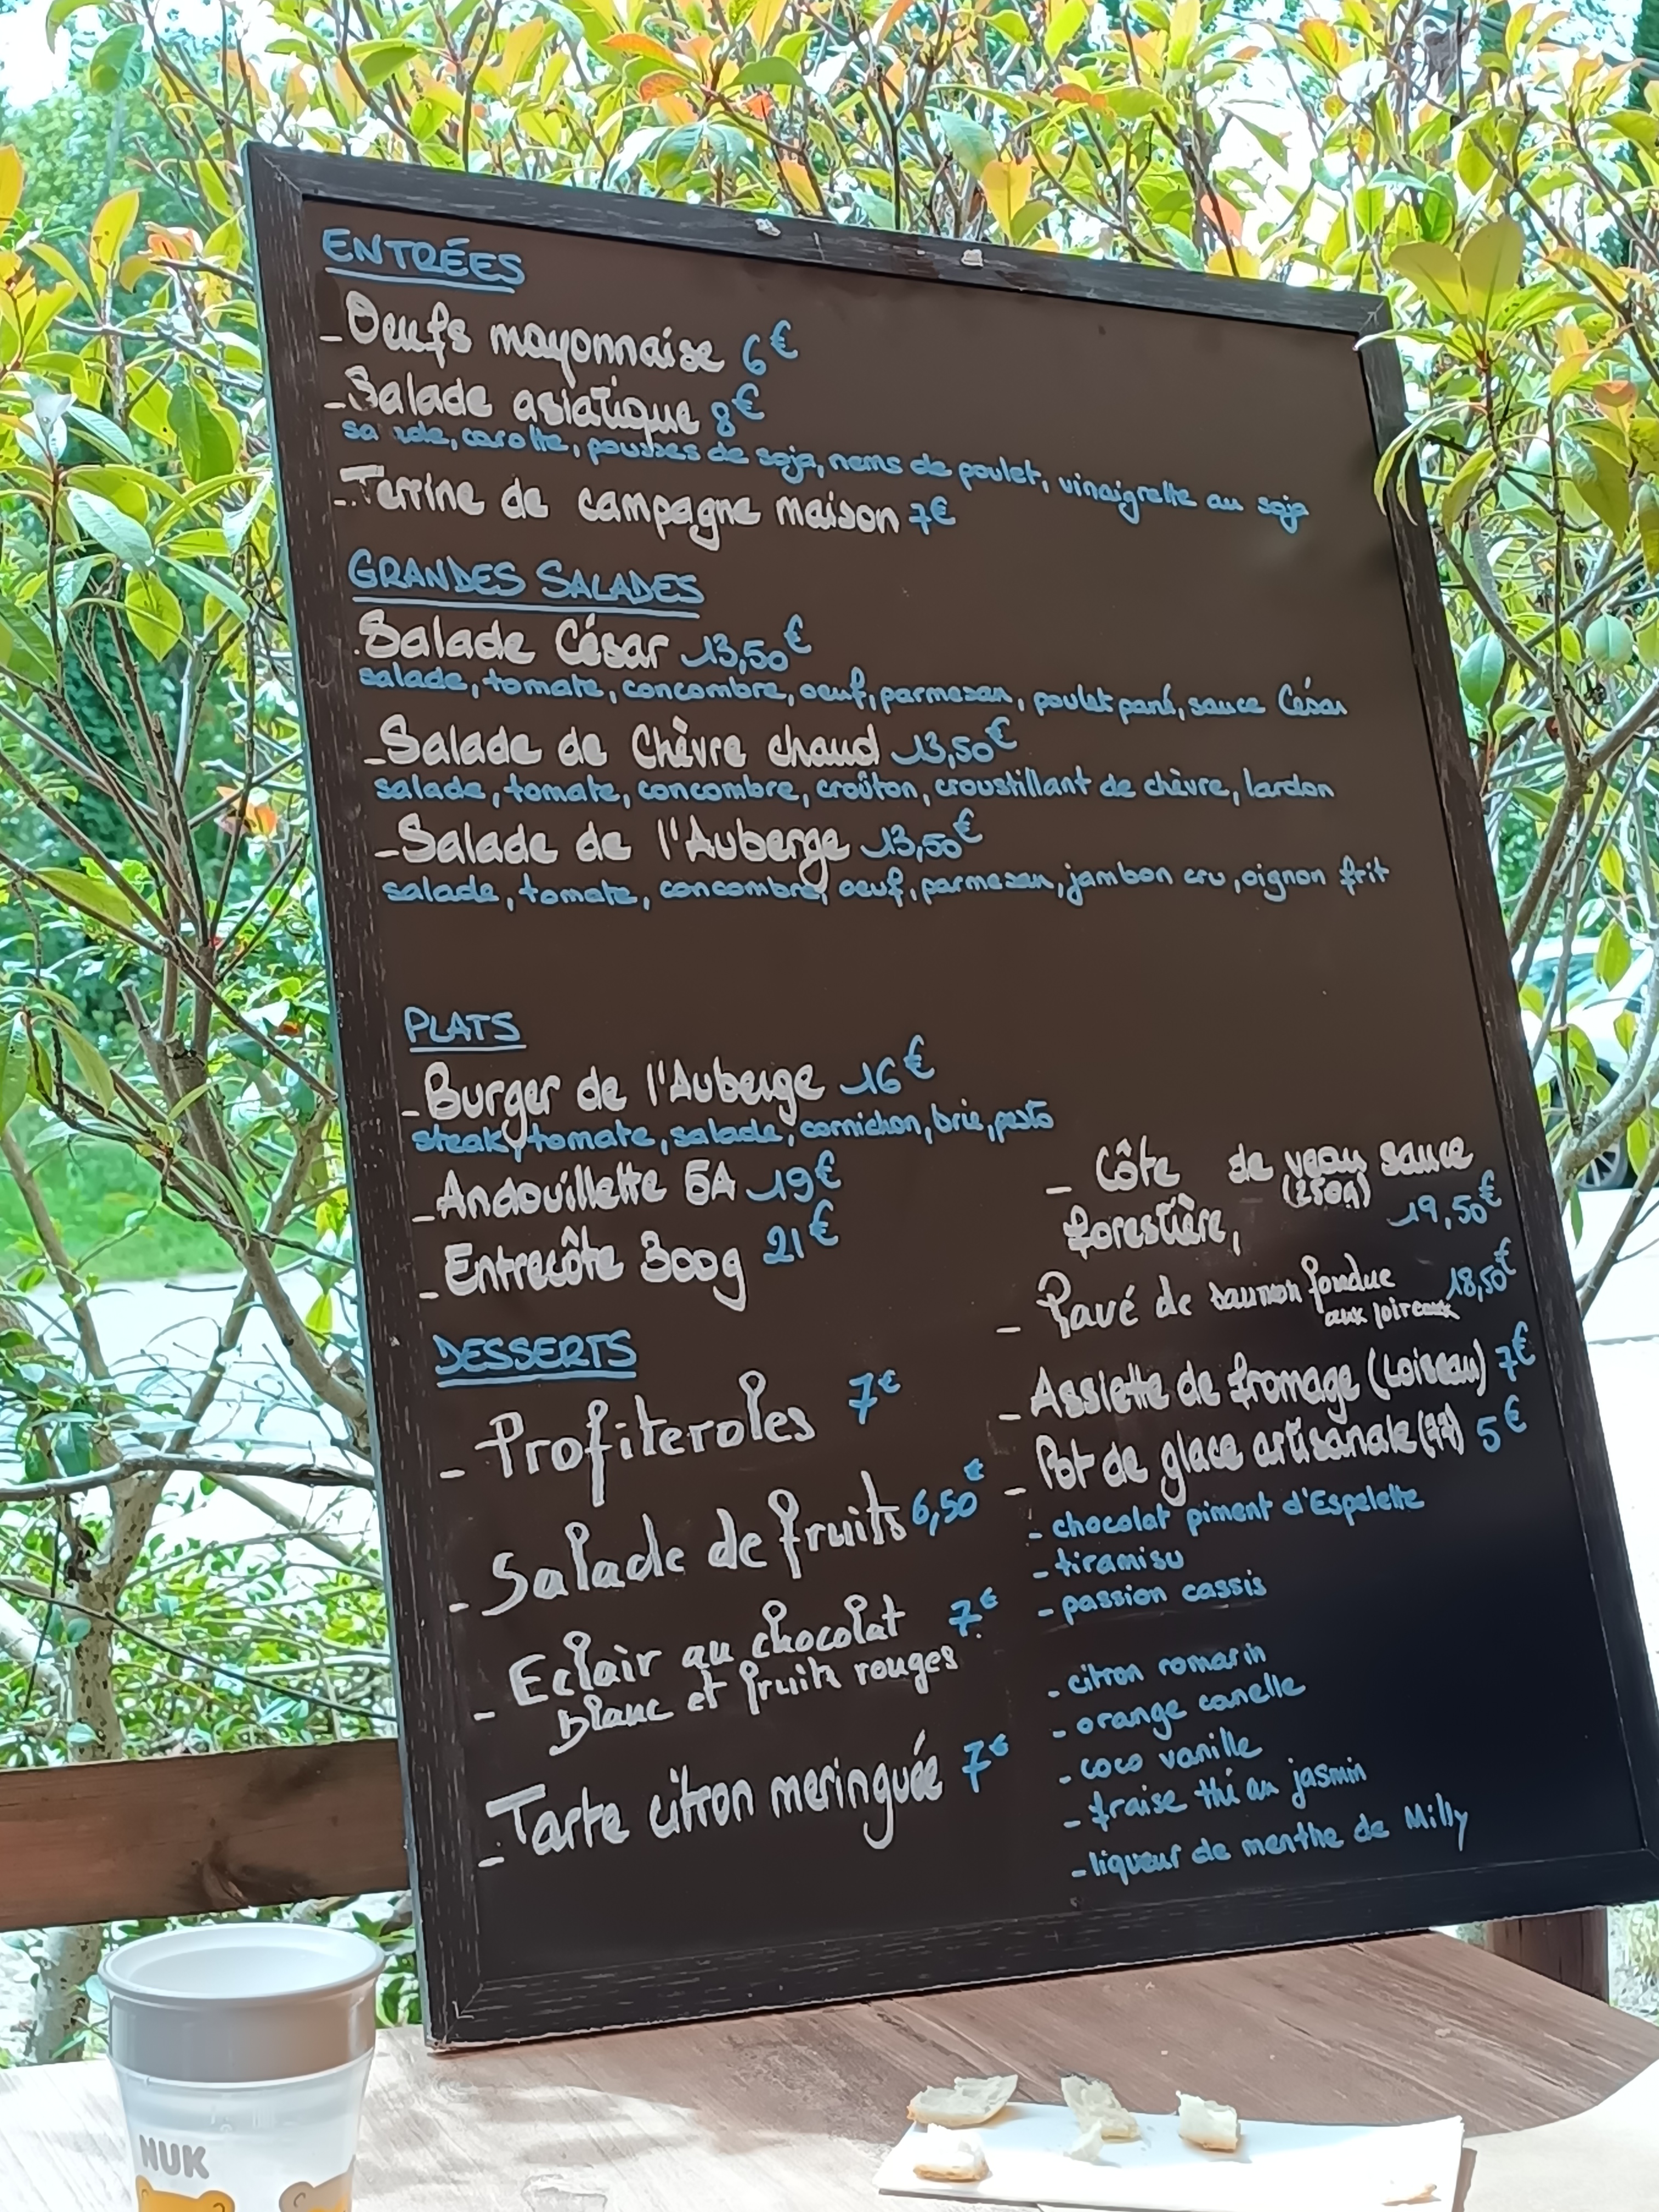 ENTRÉES
- Oeufs mayonnaise 6€
- Salade asiatique 8€
carotte, pousses de soja, nems de poulet, vinaigrette au soja
- Terrine de campagne maison 7€
GRANDES SALADES
- Salade César 13,50€
salade, tomate, concombre, oeuf, parmesan, poulet pané, sauce César
- Salade de Chèvre chaud 13,50€
salade, tomate, concombre, croûton, croustillant de chèvre, lardon
- Salade de l'Auberge 13,50€
salade, tomate, concombre, oeuf, parmesan, jambon cru, oignon frit
PLATS
- Burger de l'Auberge 16€
steak, tomate, salade, cornichon, brie, pesto
- Andouillette 5A 19€
- Entrecôte 300g 21€
- Côte de veau sauce
(250g)
forestière, 19,50€
- Pavé de saumon fondue 18,50€
aux poireaux
DESSERTS
- Profiteroles 7€
- Salade de fruits 6,50€
- Eclair au chocolat 7€
blanc et fruits rouges
- Tarte citron meringuée 7€
- Assiette de fromage (Loiseau) 7€
- Pot de glace artisanale (77) 5€
- chocolat piment d'Espelette
- tiramisu
- passion cassis
- citron romarin
- orange canelle
- coco vanille
- fraise thé au jasmin
- liqueur de menthe de Milly
NUK